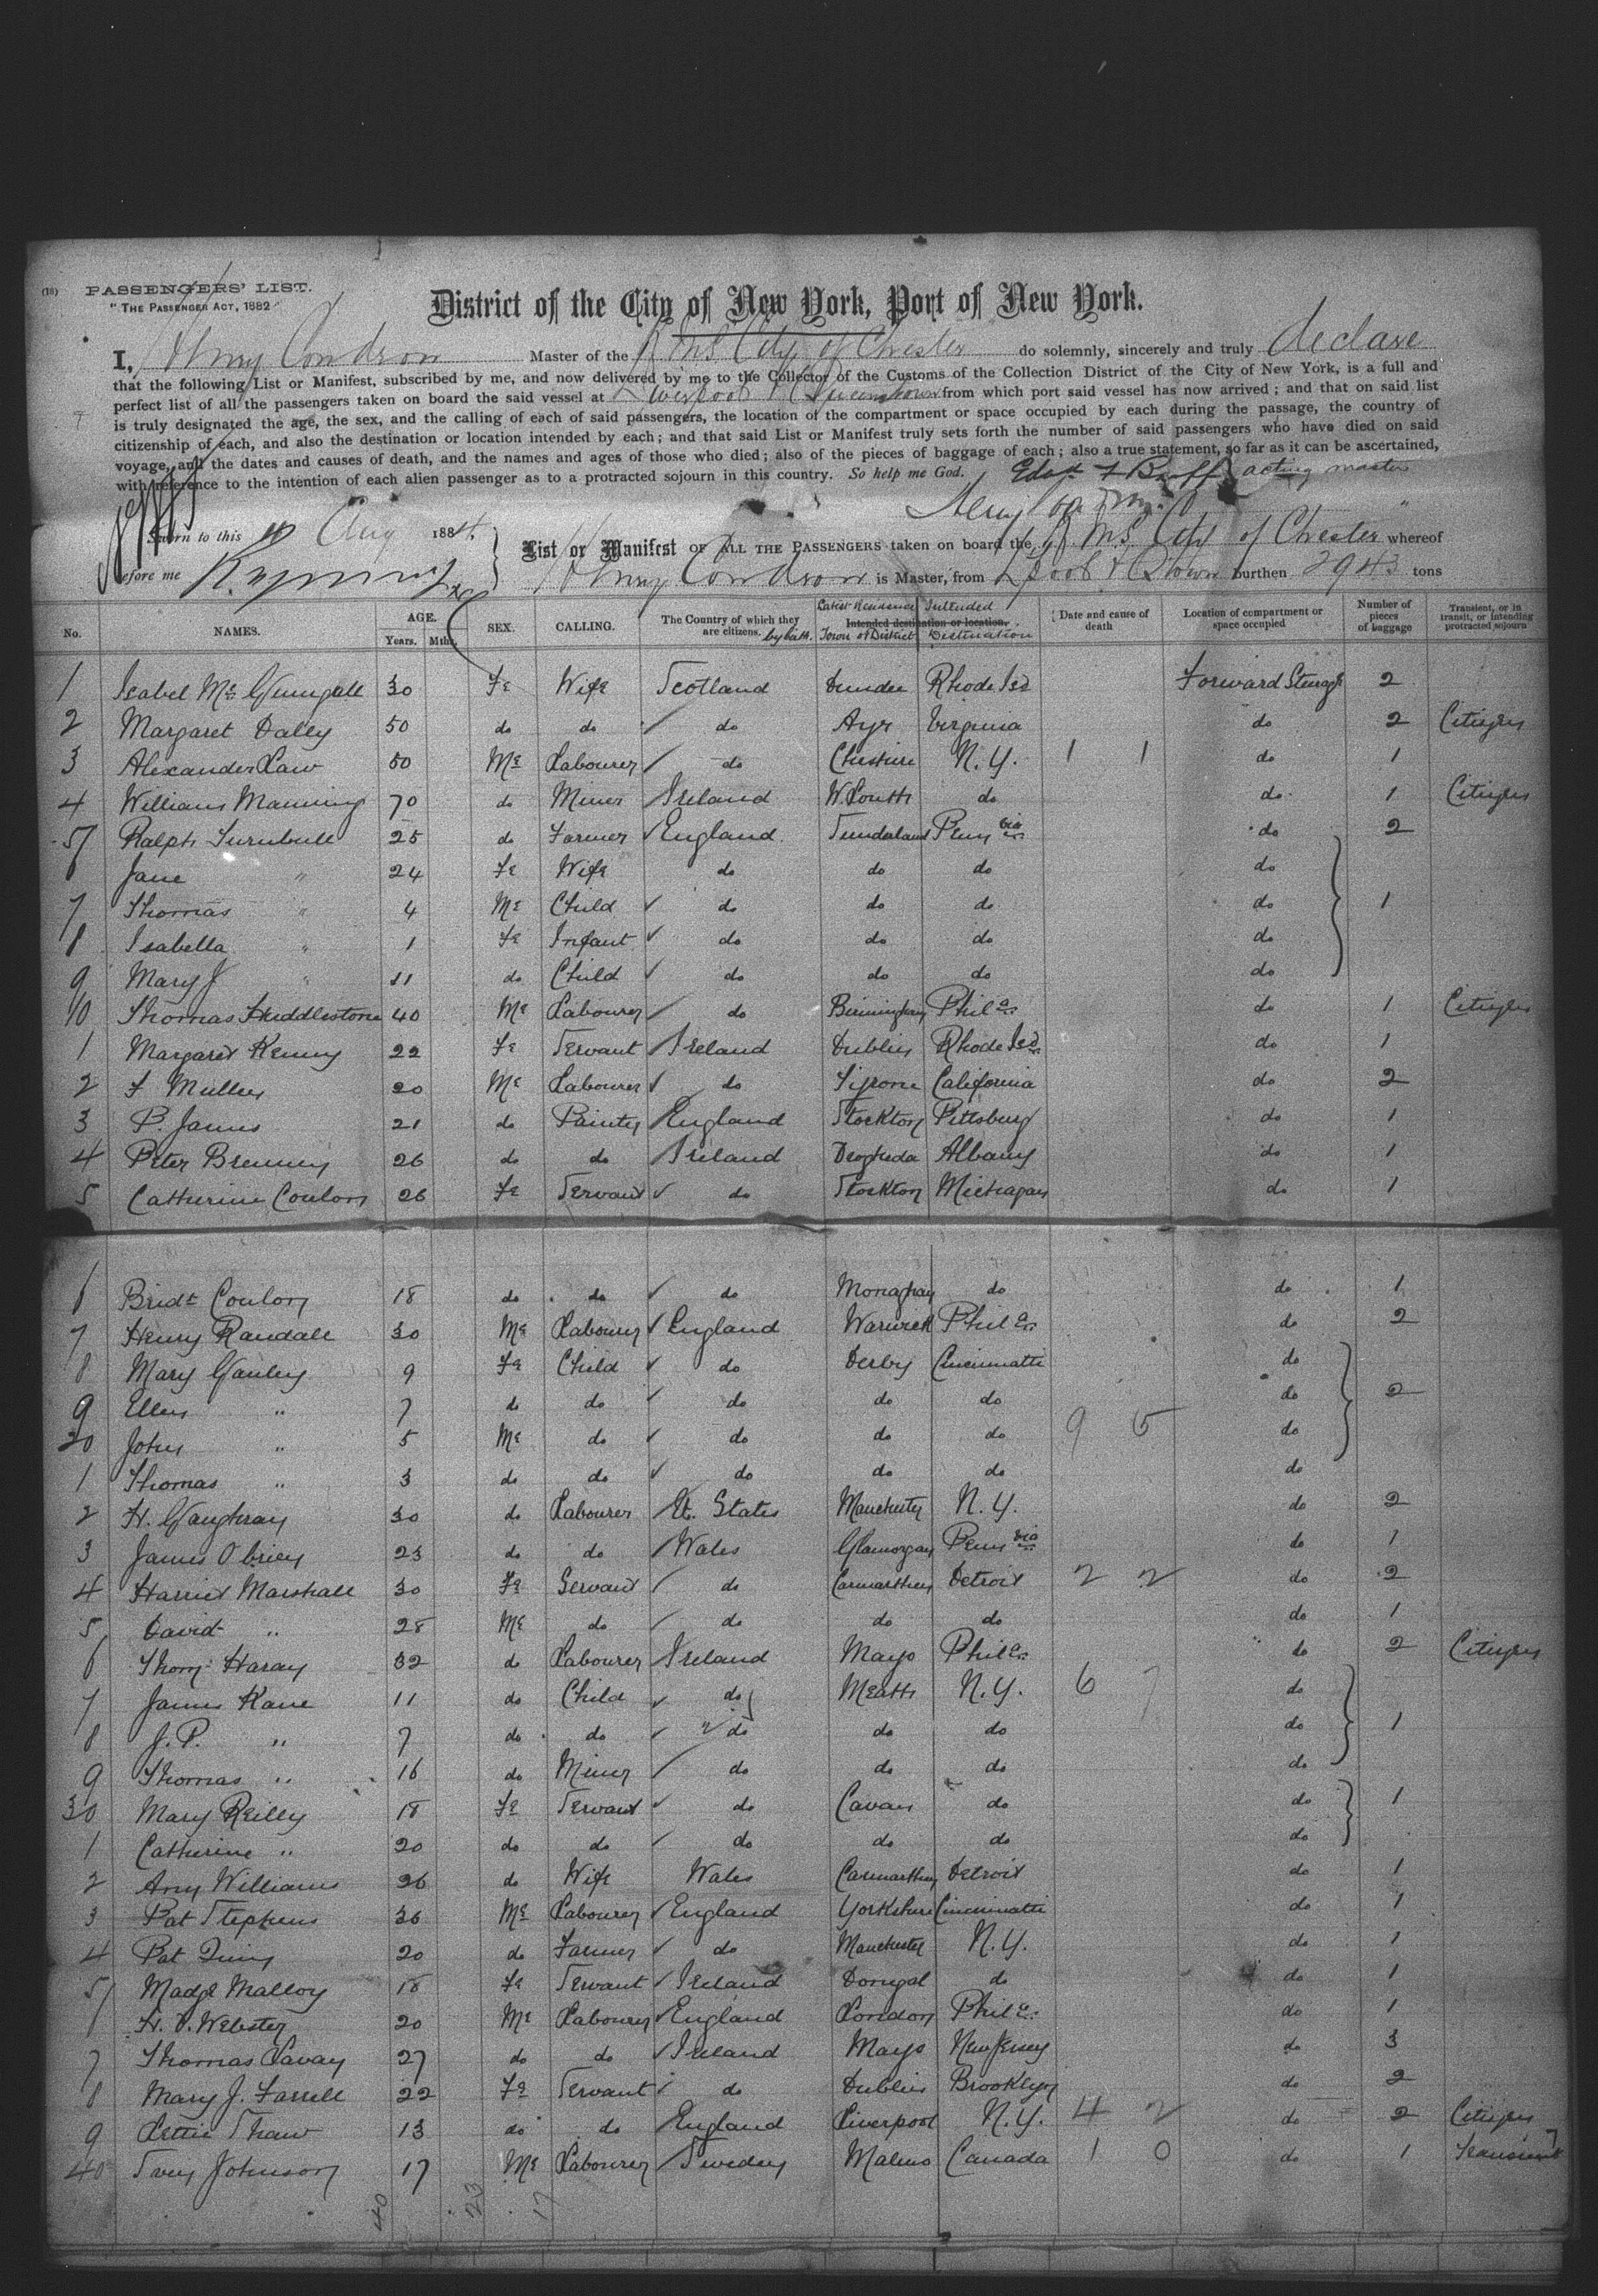 (10) PASSENGERS' LIST.
"THE PASSENGER ACT, 1882"
District of the City of New York, Port of New York.
I, Henry Condron Master of the R.M.S. City of Chester do solemnly, sincerely and truly declare
that the following List or Manifest, subscribed by me, and now delivered by me to the Collector of the Customs of the Collection District of the City of New York, is a full and
perfect list of all the passengers taken on board the said vessel at Liverpool & Queenstown from which port said vessel has now arrived; and that on said list
is truly designated the age, the sex, and the calling of each of said passengers, the location of the compartment or space occupied by each during the passage, the country of
citizenship of each, and also the destination or location intended by each; and that said List or Manifest truly sets forth the number of said passengers who have died on said
voyage, and the dates and causes of death, and the names and ages of those who died; also of the pieces of baggage of each; also a true statement, so far as it can be ascertained,
with reference to the intention of each alien passenger as to a protracted sojourn in this country. So help me God. acting master
Sworn to this Aug 1884
before me
List or Manifest OF ALL THE PASSENGERS taken on board the R.M.S. City of Chester whereof
Henry Condron is Master, from Lpool & Qtown burthen 2943 tons
No. NAMES. AGE. Years. Mths. SEX. CALLING. The Country of which they are citizens. by birth. Latest Residence Town or District Intended destination or location. Intended Destination Date and cause of death Location of compartment or space occupied Number of pieces of baggage Transient, or in transit, or intending protracted sojourn
1 Isabel 30 Fe Wife Scotland Dundee Rhode Isd Forward Steerage 2
2 Margaret Dally 50 do do do Ayr Virginia do 2 Citizen
3 Alexander Law 50 Me Labourer do Cheshire N.Y. 1 1 do 1
4 William Manning 70 do Miner Ireland do do 1 Citizen
5 Ralph Turnbull 25 do Farmer England Sunderland Pennvia do 2
6 Jane " 24 Fe Wife do do do do
7 Thomas " 4 Me Child do do do do 1
8 Isabella " 1 Fe Infant do do do do
9 Mary J " 11 do Child do do do do
10 Thomas Huddlestone 40 Me Labourer do Birmingham Phila do 1 Citizen
1 Margaret Kenny 22 Fe Servant Ireland Dublin Rhode Isd do 1
2 F Mullen 20 Me Labourer do Tyrone California do 2
3 P. James 21 do Painter England Stockton Pittsburg do 1
4 Peter Brennen 26 do do Ireland Drogheda Albany do 1
5 Catherine Coulon 26 Fe Servant do Stockton Michagan do 1
6 Bridt Coulon 18 do do do Monaghan do do 1
7 Henry Randall 30 Me Labourer England Warwick Phila do 2
8 Mary Gauley 9 Fe Child do Derby Cincinnatti do
9 Ellen " 7 do do do do do do 2
20 John " 5 Me do do do do 9 5 do
1 Thomas " 3 do do do do do do
2 H. Gaughran 30 do Labourer U. States Manchester N.Y. do 2
3 James Obrien 23 do do Wales Glamorgan Pennvia do 1
4 Harriet Marshall 30 Fe Servant do Carmarthen Detroit 2 2 do 2
5 David " 28 Me do do do do do 1
6 Thom. Haray 32 do Labourer Ireland Mayo Phila do 2 Citizen
7 James Kane 11 do Child do Meath N.Y. 6 7 do
8 J.P. " 7 do do do do do do 1
9 Thomas " 16 do Miner do do do do
30 Mary Reilly 18 Fe Servant do Cavan do do 1
1 Catherine " 20 do do do do do do
2 Amy Williams 26 do Wife Wales Carmarthen Detroit do 1
3 Pat Stephens 36 Me Labourer England Yorkshire Cincinnatti do 1
4 Pat Quin 20 do Farmer do Manchester N.Y. do 1
5 Madge Malloy 18 Fe Servant Ireland Donegal do do 1
6 H. V. Webster 20 Me Labourer England London Phila do 1
7 Thomas Lavay 27 do do Ireland Mayo New Jersey do 3
8 Mary J. Farrell 22 Fe Servant do Dublin Brooklyn do 2
9 Lettie Shaw 13 do do England Liverpool N.Y. 4 2 do 2 Citizen
40 Sven Johnson 17 Me Labourer Sweden Malmo Canada 1 0 do 1 Transient
40 23 17